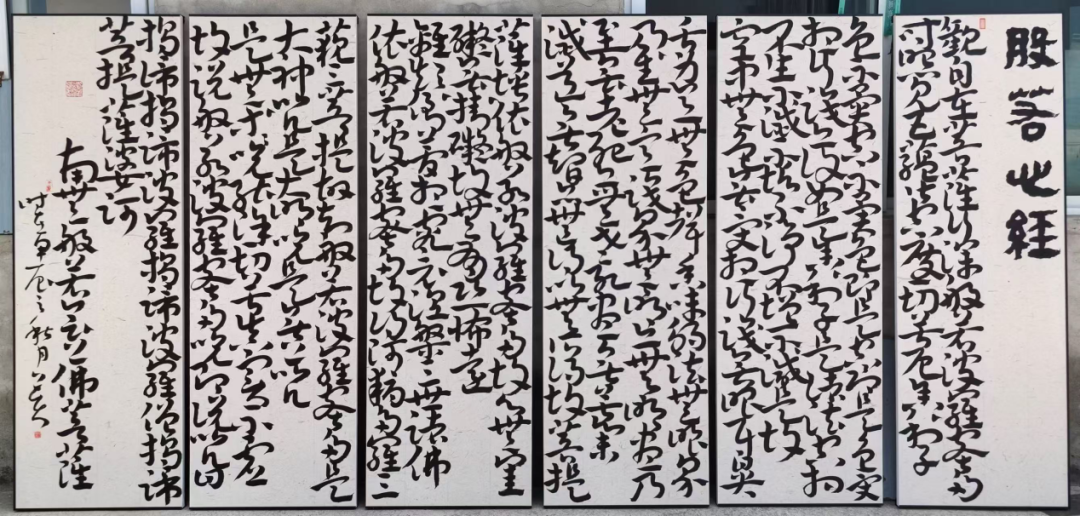 般若心經
觀自在菩薩行深般若波羅蜜多
時照見五蘊皆空度一切苦厄舍利子
色不異空空不異色色即是空空即是色受
想行識亦復如是舍利子是諸法空相
不生不滅不垢不淨不增不減是故
空中無色無受想行識無眼耳鼻
舌身意無色聲香味觸法無眼界
乃至無意識界無無明亦無無明盡乃
至無老死亦無老死盡無苦集
滅道無智亦無得以無所得故菩提
薩埵依般若波羅蜜多故心無罣
礙無罣礙故無有恐怖遠
離顛倒夢想究竟涅槃三世諸佛
依般若波羅蜜多故得阿耨多羅三
藐三菩提故知般若波羅蜜多是
大神咒是大明咒是無上咒
是無等等咒能除一切苦真實不虛
故說般若波羅蜜多咒即說咒曰
揭諦揭諦波羅揭諦波羅僧揭諦
菩提薩婆訶
南無般若會上佛菩薩
之秋月